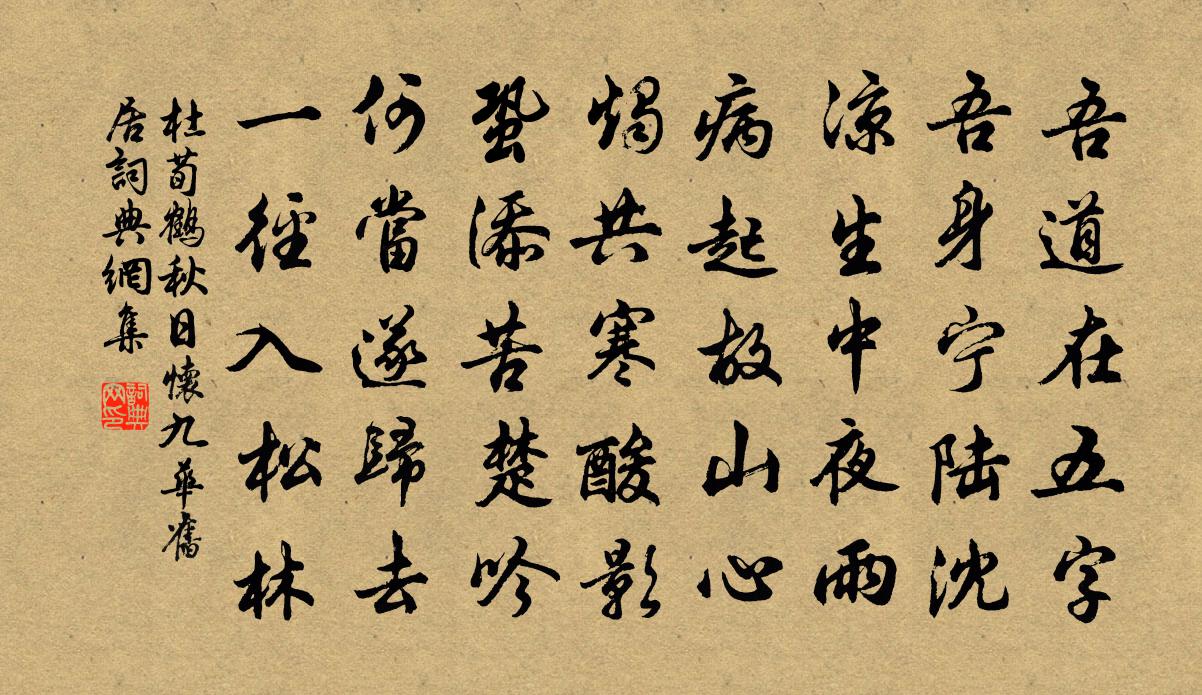 吾道在五字
吾身宁陆沈
涼生中夜雨
病起故山心
燭共寒酸影
蛩添苦楚吟
何當遂歸去
一徑入松林
杜荀鶴秋日懷九華舊
居詞典網集
詞典
网印